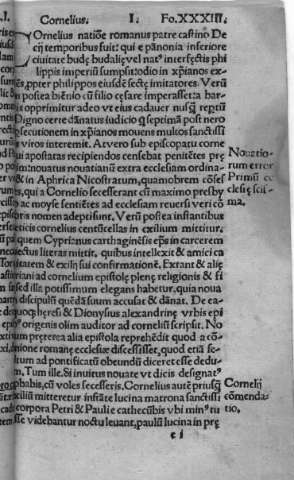 .I. Cornelius. I. Fo.XXXIII.
Ornelius natiõe romanus patre castino De
cij temporibus fuit: qui e pãnonia inferiore
ciuitate budę budalię vel nat⁹ interfectis phi
lippis imperiũ sumpsit: odio in xp̃ianos ex-
pter philippos eiusdẽ sectę imitatores. Verũ
is postea biẽnio cũ filio cęsare imperasset a bar-
opprimitur adeo vt eius cadauer nusq̃ reptũ
Digno certe dãnatus iudicio q septima post nero
psecutionem in xp̃ianos mouens multos sanctissi
viros interemit. At vero sub episcopatu corne
apostatas recipiendos censebat penitẽtes prę
nouatus nouatianũ extra ecclesiam ordina-
& in Aphrica Nicostratum, quamobrem cõfes
qui a Cornelio secesserant cũ maximo presby
ac moyse sentiẽtes ad ecclesiam reuersi veri cõ
nomen adeptisunt. Verũ postea instantibus
cornelius centũcellas in exilium mittitur,
quem Cyprianus carthaginẽsis ep̃s in carcerem
literas mittit, quibus intellexit & amici ca
& exilij sui confirmationẽ. Extant & alię
ad cornelium epistolę plenę religionis & fi
sed illa potissimum elegans habetur, qui a noua
discipulũ quẽdã suum accusat & dãnat. De ea-
hęresi & Dionysius alexandrinę vrbis epi
origenis olim auditor ad corneliũ scripsit. No
pręterea alia epistola reprehẽdit quod a cõ-
romanę ecclesiæ discessisset, quod etiã se-
ad pontificatũ obeundũ diceret esse dedu-
Tum ille. Si inuitus nouate vt dicis designat⁹
cũ voles secesseris. Cornelius autẽ priusq̃
mitteretur instãte lucina matrona sanctissi
corpora Petri & Pauli e cathecũbis vbi min⁹ tu
videbantur noctu leuant, paulũ lucina in prę
e i
Nouatio-
rum error
Primũ
clesię scis-
ma.
Cornelij
cõmenda-
tio.